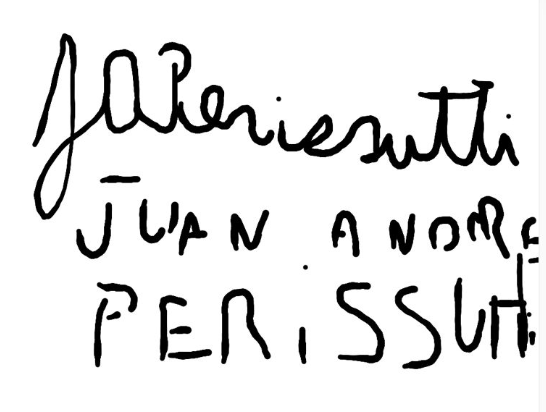 JAPerissutti
JUAN ANDRE
PERISSUTTI